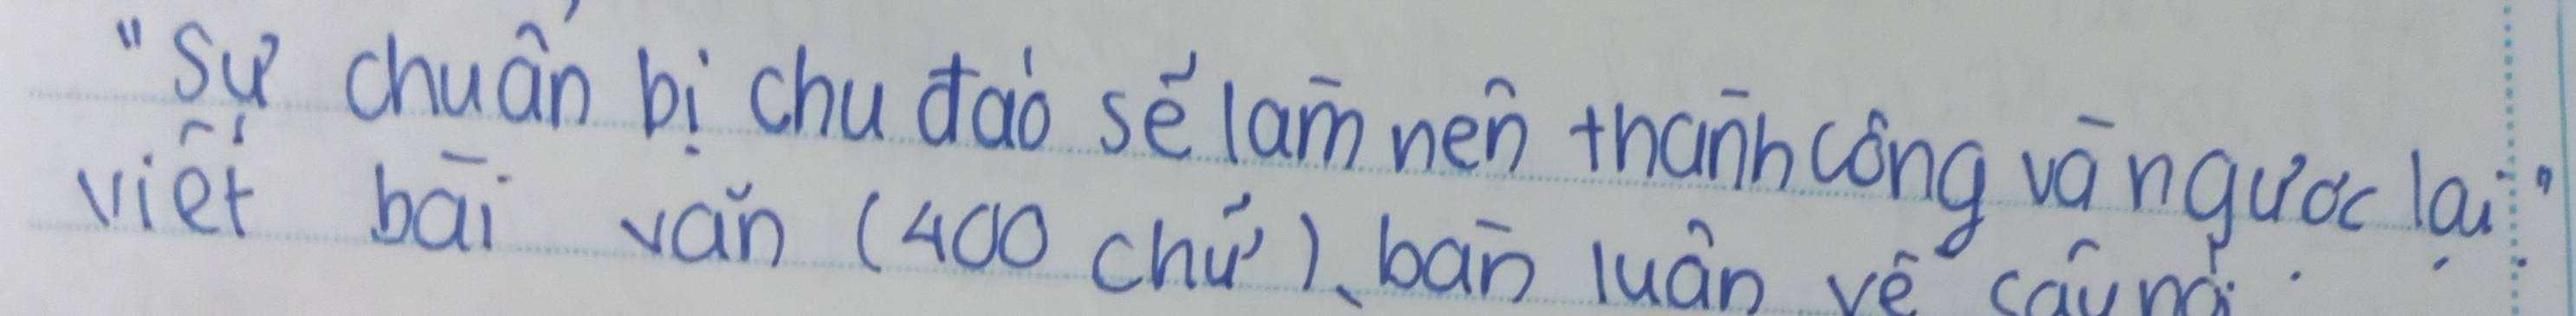 "Sự chuẩn bị chu đáo sẽ làm nên thành công và ngược lại"
viết bài văn (400 chữ), bàn luận về câu nói.